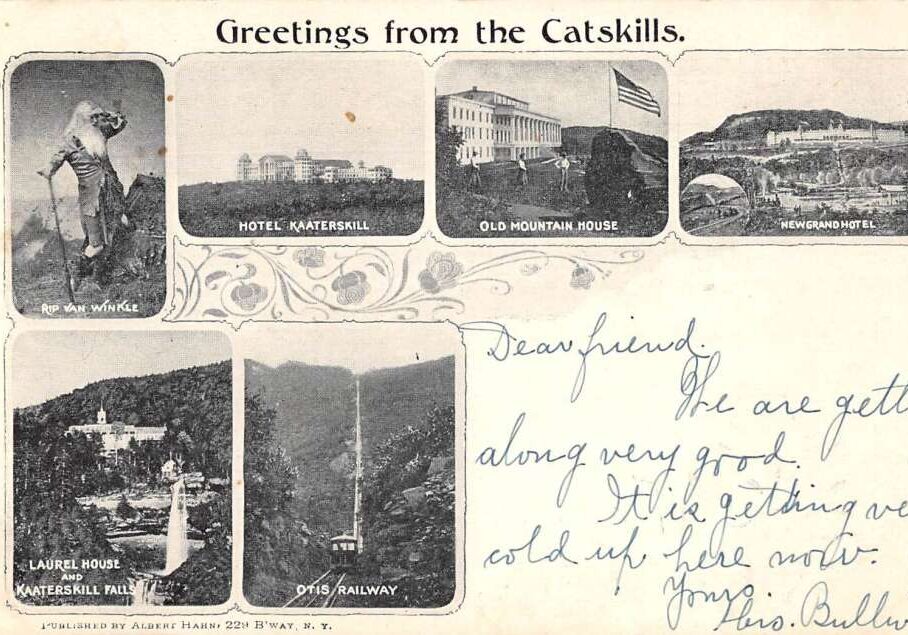 Greetings from the Catskills.
RIP VAN WINKLE
HOTEL KAATERSKILL
OLD MOUNTAIN HOUSE
NEW GRAND HOTEL
LAUREL HOUSE
AND
KAATERSKILL FALLS
OTIS RAILWAY
Dear friend.
We are gett
along very good.
It is getting ve
cold up here now.
Yours
PUBLISHED BY ALBERT HAHN, 229 B'WAY, N. Y.